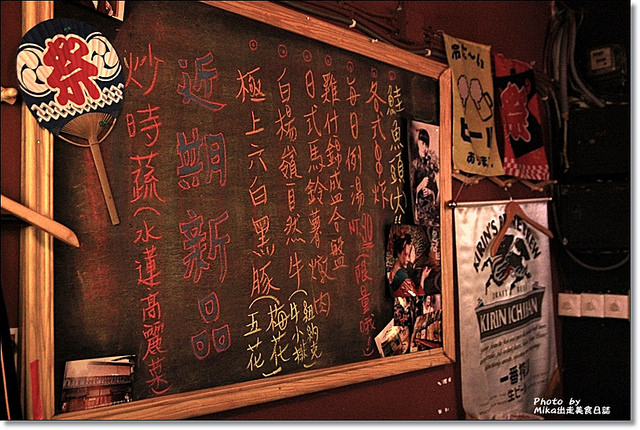 鮭魚頭
各式串炸
每日例湯NT$10(限量哦)
雞什錦盛合盤
日式馬鈴薯燉肉
白楊嶺自然牛(牛小排 紐約克)
極上六白黑豚(五花 梅花)
近期新品
炒時蔬(水蓮 高麗菜)
祭
祭
KIRIN
KIRIN ICHIBAN
一番搾
Photo by
Mika出走美食日誌